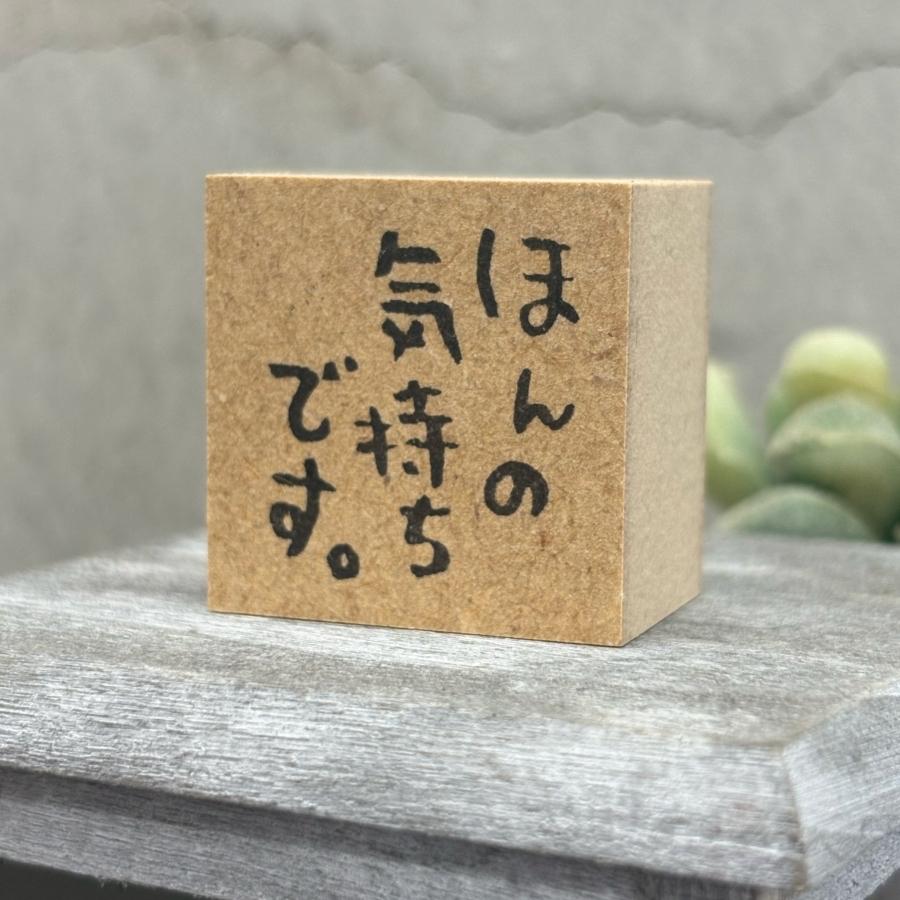 ほんの
気持ち
です。